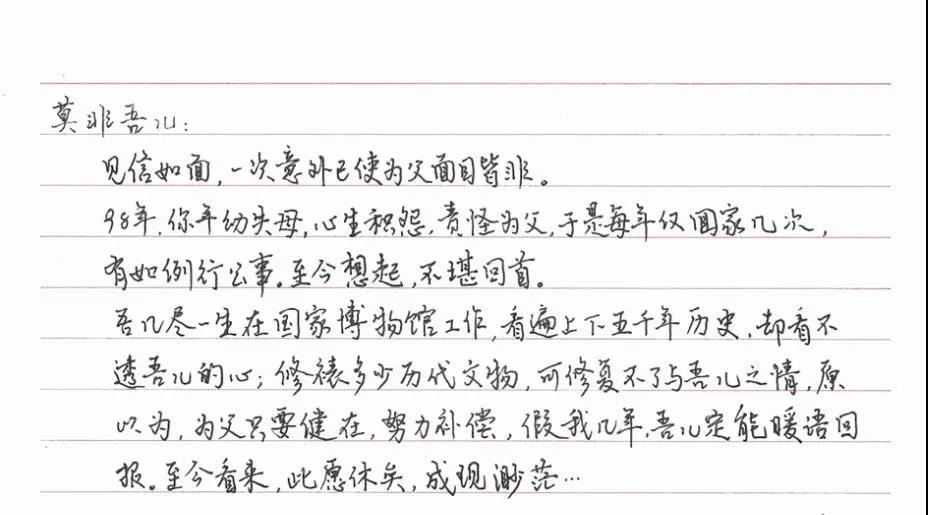 莫非吾儿:
见信如面,一次意外已使为父面目皆非。
98年,你年幼失母,心生积怨,责怪为父,于是每年仅回家几次,
有如例行公事。至今想起,不堪回首。
吾儿尽一生在国家博物馆工作,看遍上下五千年历史,却看不
透吾儿的心;修裱多少历代文物,可修复不了与吾儿之情,原
以为,为父只要健在,努力补偿,假我几年,吾儿定能暖语回
报。至今看来,此愿休矣,成现渺茫…